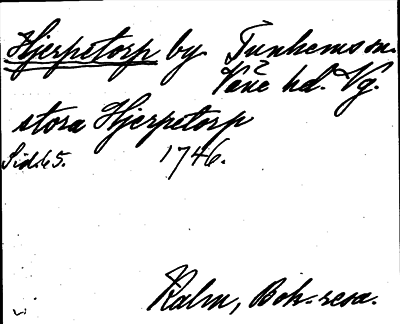 Hjerpetorp by. Tunhems sn.
Väne hd. Vg.
stora Hjerpetorp
Sid. 65. 1746.
Kalm, Boh-resa.